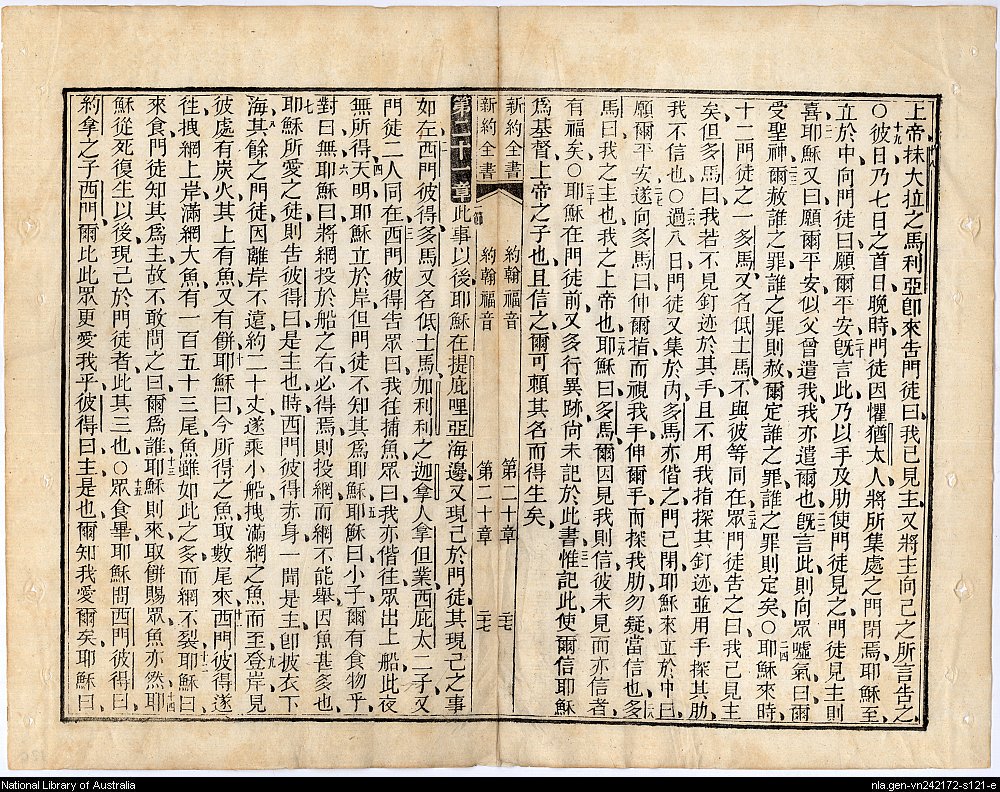 上帝抹大拉之馬利亞卽來告門徒曰我已見主又將主向己之所言告之
十九
〇彼日乃七日之首日晚時門徒因懼猶太人將所集處之門閉焉耶穌至
立於中向門徒曰願爾平安旣言此乃以手及肋使門徒見之門徒見主則
喜耶穌又曰願爾平安似父曾遣我我亦遣爾也旣言此則向眾噓氣曰爾
受聖神爾赦誰之罪誰之罪則赦爾定誰之罪誰之罪則定矣〇耶穌來時
十二門徒之一多馬又名低士馬不與彼等同在眾門徒告之曰我已見主
矣但多馬曰我若不見釘迹於其手且不用我指探其釘迹並用手探其肋
我不信也〇過八日門徒又集於內多馬亦偕之門已閉耶穌來立於中曰
願爾平安遂向多馬曰伸爾指而視我手伸爾手而探我肋勿疑當信也多
馬曰我之主也我之上帝也耶穌曰多馬爾因見我則信彼未見而亦信者
有福矣〇耶穌在門徒前又多行異跡尙未記於此書惟記此使爾信耶穌
爲基督上帝之子也且信之爾可賴其名而得生矣
新約全書 約翰福音 第二十章 二七
新約全書 約翰福音 第二十章 二七
第二十一章 此事以後耶穌在提庇哩亞海邊又現己於門徒其現己之事
如在西門彼得多馬又名低士馬加利利之迦拿人拿但業西庇太二子又
門徒二人同在西門彼得告眾曰我往捕魚眾曰我亦偕往眾出上船此夜
無所得天明耶穌立於岸但門徒不知其爲耶穌耶穌曰小子爾有食物乎
對曰無耶穌曰將網投於船之右必得焉則投網而網不能舉因魚甚多也
耶穌所愛之徒則告彼得曰是主也時西門彼得赤身一聞是主卽披衣下
海其餘之門徒因離岸不遠約二十丈遂乘小船拽滿網之魚而至登岸見
彼處有炭火其上有魚又有餅耶穌曰今所得之魚取數尾來西門彼得遂
往拽網上岸滿網大魚有一百五十三尾魚雖如此之多而網不裂耶穌曰
來食門徒知其爲主故不敢問之曰爾爲誰耶穌則來取餅賜眾魚亦然耶
穌從死復生以後現己於門徒者此其三也〇眾食畢耶穌問西門彼得曰
約拿之子西門爾比此眾更愛我乎彼得曰主是也爾知我愛爾矣耶穌曰
National Library of Australia
nla.gen-vn242172-s121-e